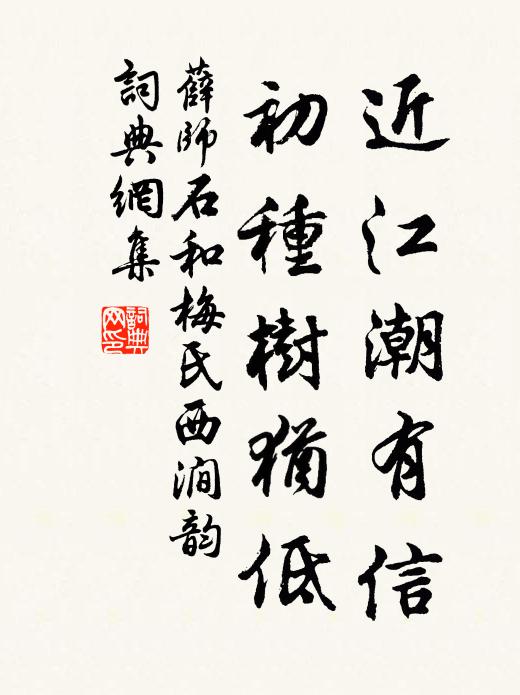 近江潮有信
初種樹猶低
薛師石和梅氏西澗韵
詞典網集
詞典網印